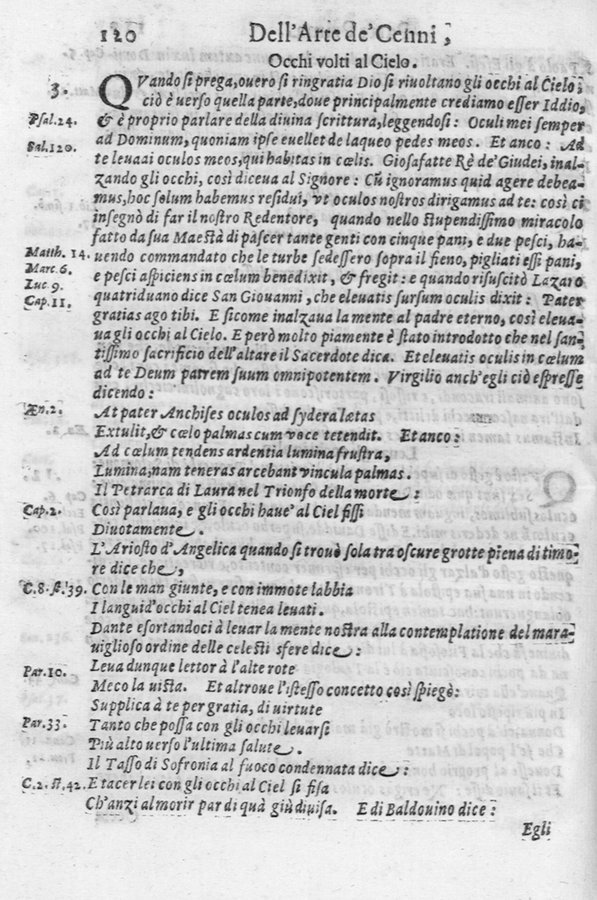 120 Dell'Arte de' Cenni,
Occhi volti al Cielo.
3. QVando si prega, ouero si ringratia Dio si riuoltano gli occhi al Cielo;
ciò è uerso quella parte, doue principalmente crediamo esser Iddio,
Psal.24. & è proprio parlare della diuina scrittura, leggendosi: Oculi mei semper
ad Dominum, quoniam ipse euellet de laqueo pedes meos. Et anco: Ad
Sal.120. te leuaui oculos meos, qui habitas in cœlis. Giosafatte Rè de' Giudei, inal-
zando gli occhi, così diceua al Signore: Cū ignoramus quid agere debea-
mus, hoc solum habemus residui, vt oculos nostros dirigamus ad te: così ci
insegnò di far il nostro Redentore, quando nello stupendissimo miracolo
fatto da sua Maestà di pascer tante genti con cinque pani, e due pesci, ha-
Matth. 14. uendo commandato che le turbe sedessero sopra il fieno, pigliati essi pani,
Marc. 6. e pesci aspiciens in cœlum benedixit, & fregit: e quando risuscitò Lazaro
Luc 9. quatriduano dice San Giouanni, che eleuatis sursum oculis dixit: Pater
Cap.11. gratias ago tibi. E sicome inalzaua la mente al padre eterno, così eleua-
ua gli occhi al Cielo. E però molto piamente è stato introdotto che nel san-
tissimo sacrificio dell'altare il Sacerdote dica. Et eleuatis oculis in cœlum
ad te Deum patrem suum omnipotentem. Virgilio anch'egli ciò espresse
dicendo:
Æn.2. At pater Anchises oculos ad sydera lætas
Extulit, & cœlo palmas cum voce tetendit. Et anco:
Ad cœlum tendens ardentia lumina frustra,
Lumina, nam teneras arcebant vincula palmas.
Il Petrarca di Laura nel Trionfo della morte:
Cap.2. Così parlaua, e gli occhi haue' al Ciel fissi
Diuotamente.
L'Ariosto d'Angelica quando si trouò sola tra oscure grotte piena di timo-
re dice che,
C.8. st.39. Con le man giunte, e con immote labbia
I languid' occhi al Ciel tenea leuati.
Dante esortandoci à leuar la mente nostra alla contemplatione del mara-
uiglioso ordine delle celesti sfere dice:
Par.10. Leua dunque lettor à l'alte rote
Meco la uista. Et altroue l'istesso concetto così spiegò:
Supplica à te per gratia, di uirtute
Par.33. Tanto che possa con gli occhi leuarsi
Più alto uerso l'ultima salute.
Il Tasso di Sofronia al fuoco condennata dice:
C.2. st.42. E tacer lei con gli occhi al Ciel si fisa
Ch'anzi al morir par di quà giù diuisa. E di Baldouino dice:
Egli